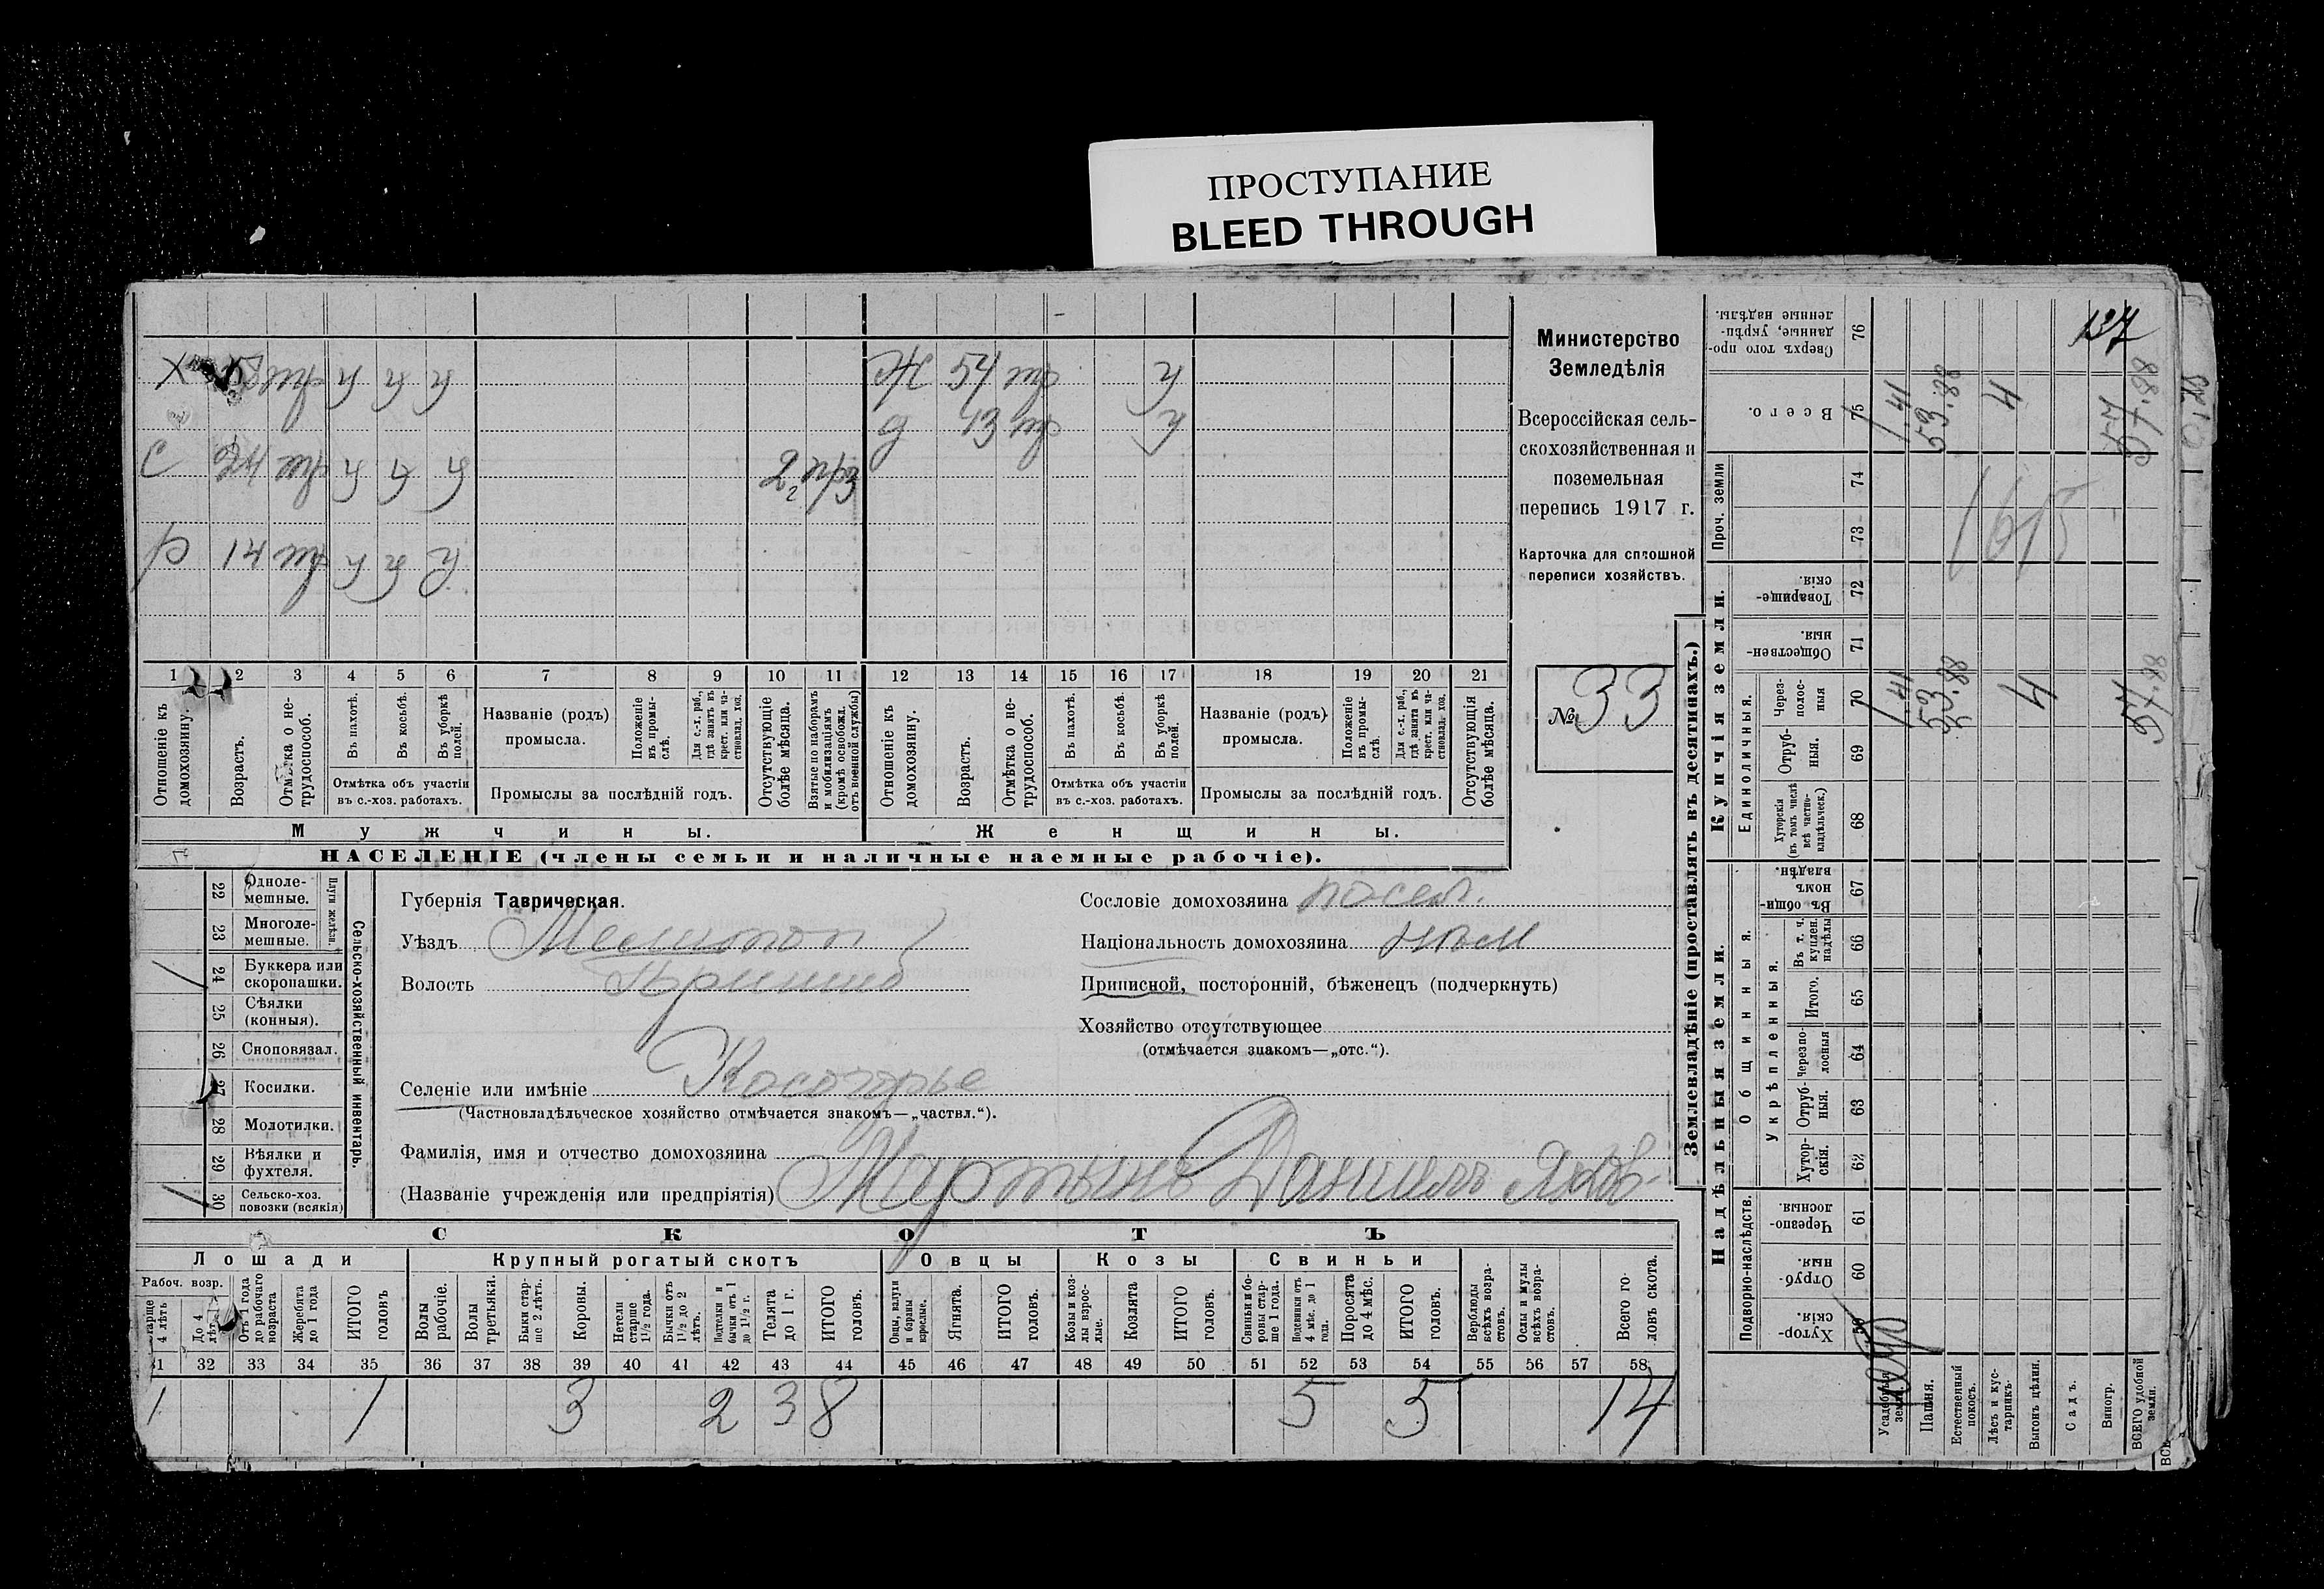 ПРОСТУПАНИЕ
BLEED THROUGH
Х ф ч ч ч Ж 54 тр ч
д 13 тр ч
С ф ч ч ч
ф 14 ф ч ч ч
1 2 3 4 5 6 7 8 9 10 11 12 13 14 15 16 17 18 19 20 21
Отношеніе къ домохозяину.
Возрастъ.
Отмѣтка о нетрудоспособ.
Въ пахотѣ.
Въ косьбѣ.
Въ уборкѣ полей.
Отмѣтка объ участіи
въ с.-хоз. работахъ.
Названіе (родъ)
промысла.
Положеніе въ промыслѣ.
Для с.-х. раб., гдѣ занятъ въ крест. или частновлад. хоз.
Промыслы за послѣдній годъ.
Отсутствующіе болѣе мѣсяца.
Взятые по наборамъ и мобилизаціямъ (кромѣ освобожд. отъ военной службы)
Отношеніе къ домохозяину.
Возрастъ.
Отмѣтка о нетрудоспособ.
Въ пахотѣ.
Въ косьбѣ.
Въ уборкѣ полей.
Отмѣтка объ участіи
въ с.-хоз. работахъ.
Названіе (родъ)
промысла.
Положеніе въ промыслѣ.
Для с.-х. раб., гдѣ занята въ крест. или частновлад. хоз.
Промыслы за послѣдній годъ.
Отсутствующія болѣе мѣсяца.
Мужчины.
Женщины.
НАСЕЛЕНІЕ (члены семьи и наличные наемные рабочіе).
Министерство
Земледѣлія
Всероссійская сель-
скохозяйственная и
поземельная
перепись 1917 г.
Карточка для сплошной
переписи хозяйствъ.
№ 33
22 Одноле-
мешные.
23 Многоле-
мешные.
Плуги желѣзн.
24 Буккера или
скоропашки.
25 Сѣялки
(конныя).
26 Сноповязал.
27 Косилки.
28 Молотилки.
29 Вѣялки и
фухтеля.
30 Сельско-хоз.
повозки (всякія)
Сельско-хозяйственный инвентарь.
Губернія Таврическая.
Уѣздъ Мелитопол
Волость Пришиб
Селеніе или имѣніе Косогорье
(Частновладѣльческое хозяйство отмѣчается знакомъ—„частвл.“).
Фамилія, имя и отчество домохозяина
(Названіе учрежденія или предпріятія) Мартынъ Данилъ Яков
Сословіе домохозяина посел.
Національность домохозяина нѣм
Приписной, посторонній, бѣженецъ (подчеркнуть)
Хозяйство отсутствующее
(отмѣчается знакомъ—„отс.“).
СКОТЪ
Лошади Крупный рогатый скотъ Овцы Козы Свиньи
Рабоч. возр.
До 4 лѣтъ
Отъ 1 года до рабочаго возраста
Жеребята до 1 года
ИТОГО головъ
Волы рабочіе.
Волы третьяки.
Быки старше 2 лѣтъ.
Коровы.
Нетели старше 1½ года.
Бычки отъ 1½ до 2 лѣтъ.
Подтелки и бычки отъ 1 до 1½ г.
Телята до 1 г.
ИТОГО головъ.
Овцы, валухи и бараны взрослые.
Ягнята.
ИТОГО головъ.
Козы и козлы взрослые.
Козлята
ИТОГО головъ.
Свиньи и боровы старше 1 года.
Подсвинки отъ 4 мѣс. до 1 года.
Поросята до 4 мѣс.
ИТОГО головъ.
Верблюды всѣхъ возрастовъ.
Ослы и мулы всѣхъ возрастовъ.
Всего головъ скота.
31 32 33 34 35 36 37 38 39 40 41 42 43 44 45 46 47 48 49 50 51 52 53 54 55 56 57 58
1 1 3 2 3 8 5 5 14
Землевладѣніе (проставлять въ десятинахъ.)
Купчія земли.
Надѣльныя земли.
Сверхъ того проданные, укрѣпленные надѣлы. 76
Всего. 75
Проч. земли 74
73
Товарищескія. 72
Общественныя. 71
Единоличныя.
Черезполосныя 70
Отрубныя. 69
Хуторскія (въ томъ числѣ всѣ частновладѣльческ.) 68
Общинныя.
Въ общиномъ владѣн. 67
Укрѣпленныя.
Въ т. ч. куплен. надѣлы 66
Итого. 65
Черезполосныя 64
Отрубныя. 63
Хуторскія. 62
Подворно-наслѣдств.
Черезполосныя. 61
Отрубныя. 60
Хуторскія. 59
Усадебныя земли.
Пашня.
Естественный покосъ.
Лѣсъ и кустарникъ.
Выгонъ цѣлин.
Садъ.
Виногр.
ВСЕГО удобной земли.
137
1615